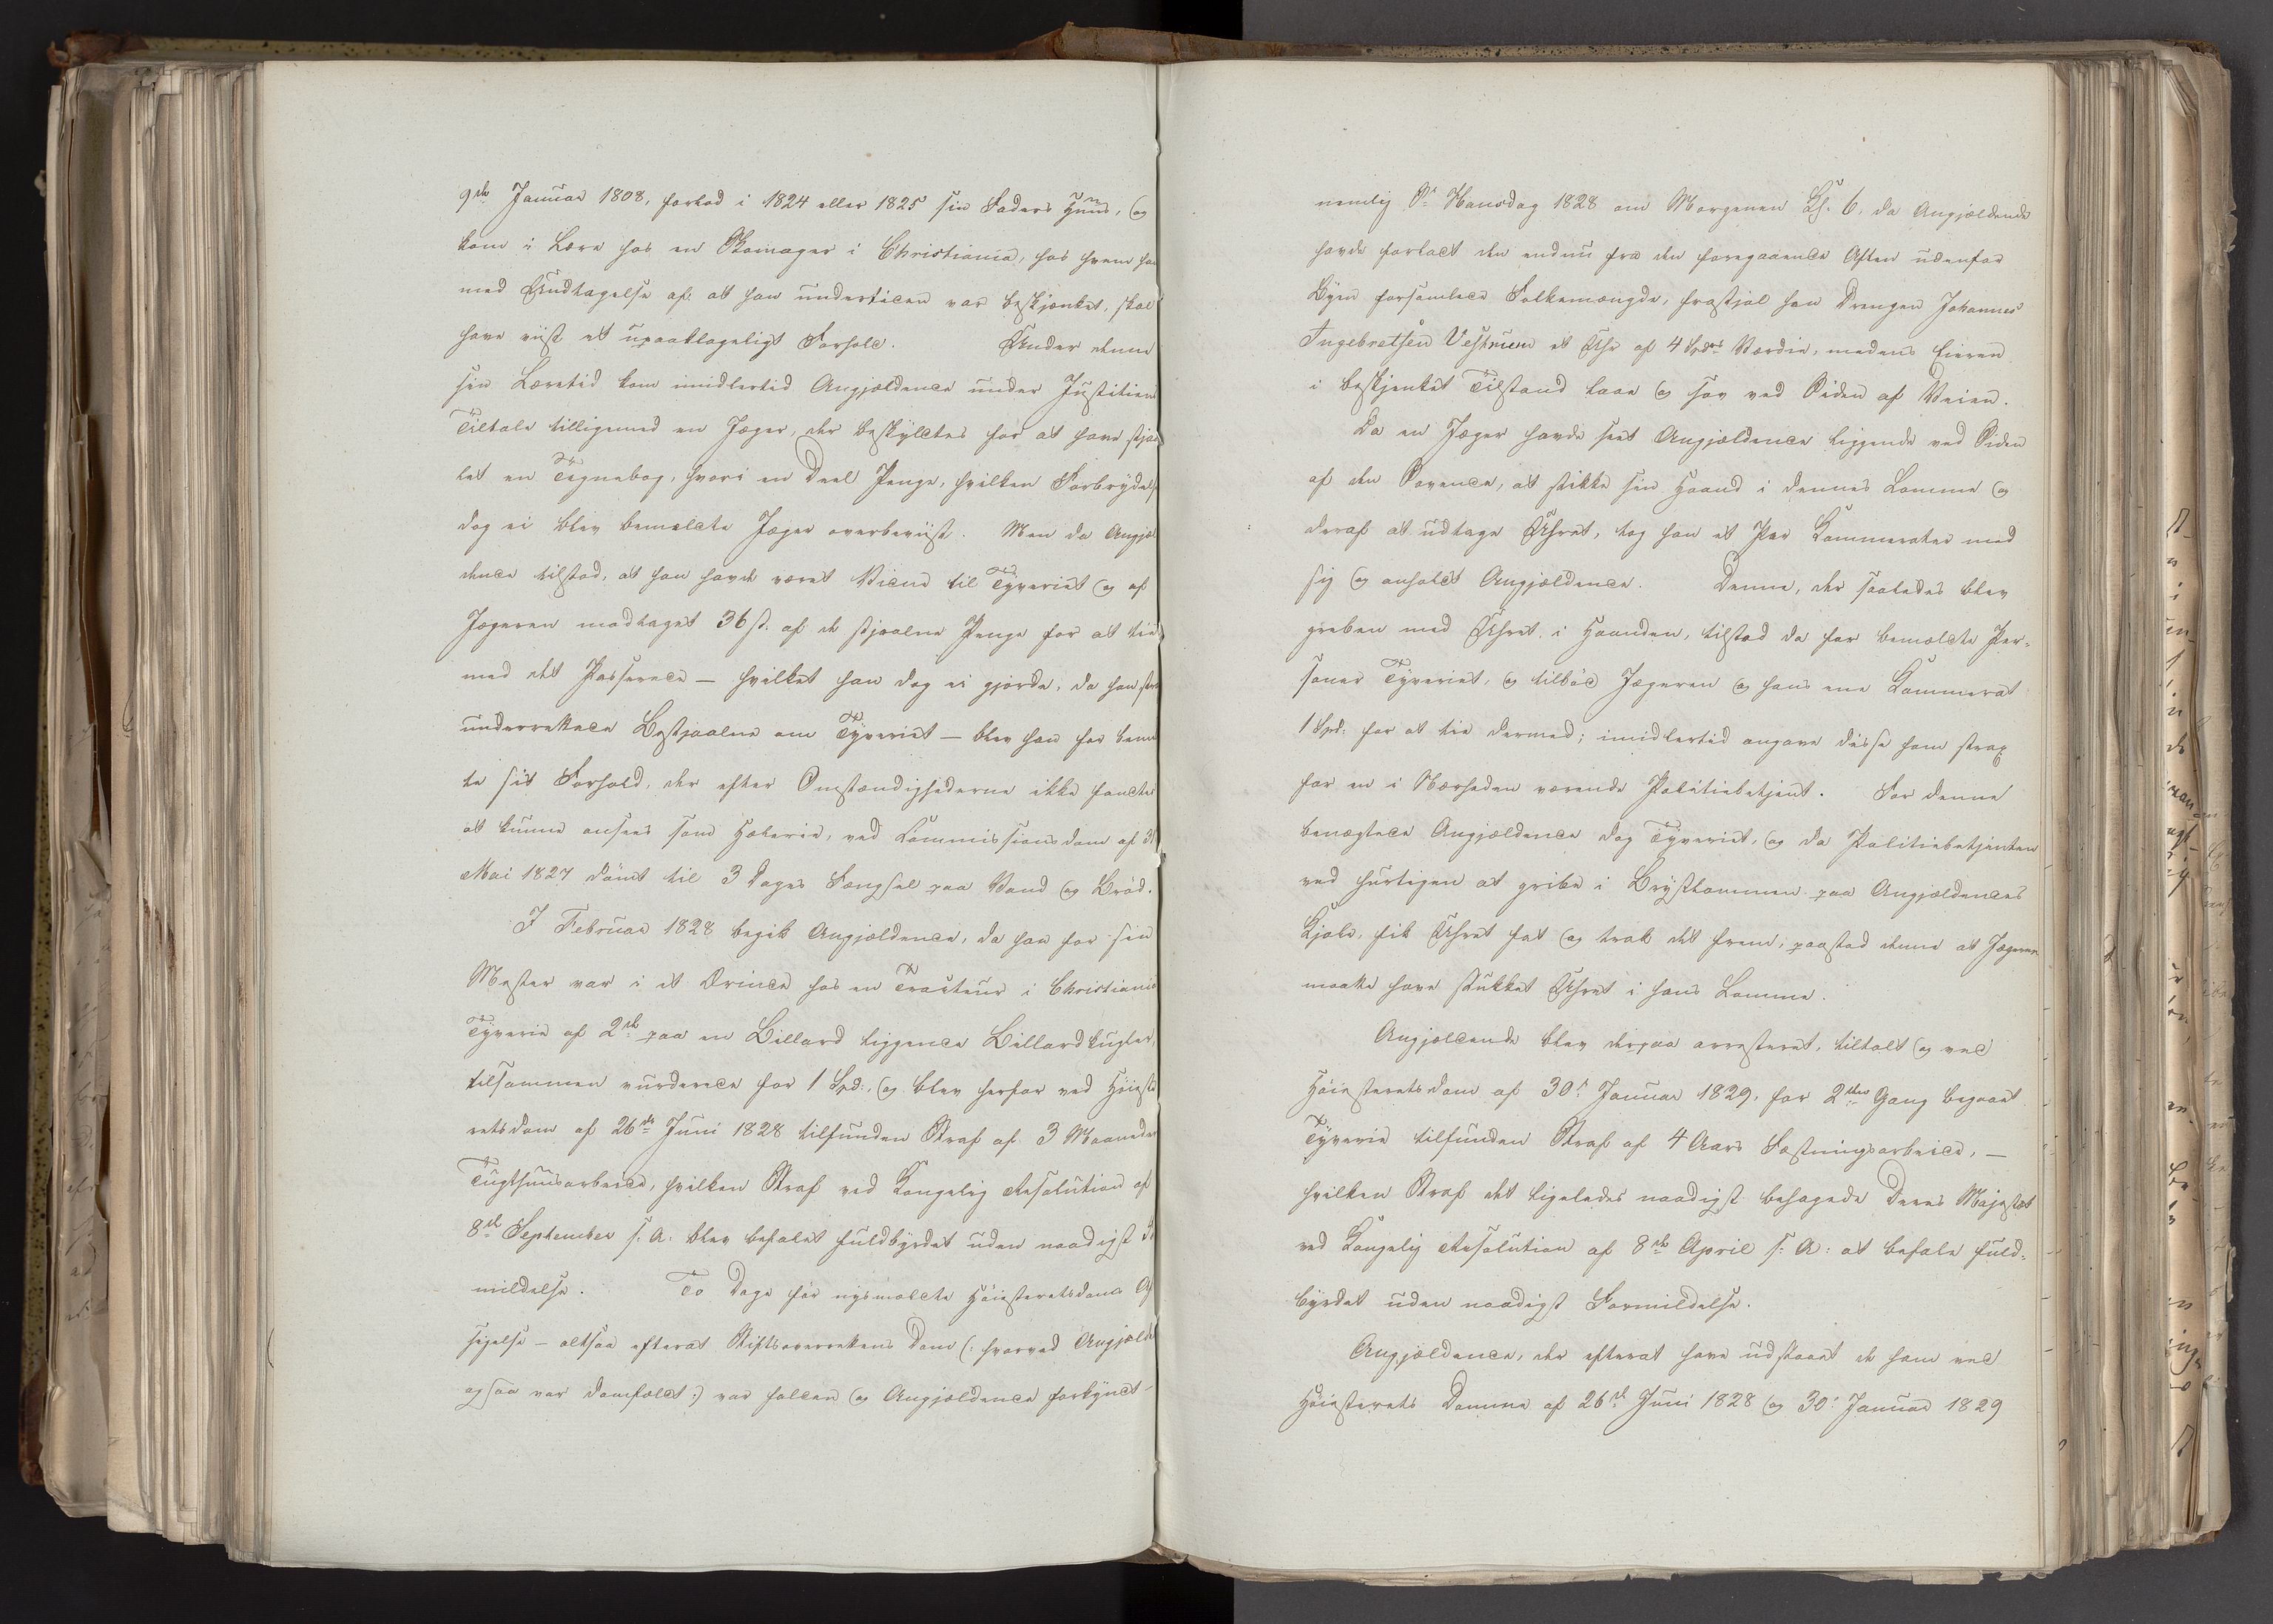 9de Januar 1808, forlod i 1824 eller 1825 sin Faders Huus, og
kom i Lære hos en Skomager i Christiania, hos hvem han
med Undtagelse af at han undertiden var beskjænket, skal
have viist et upaaklageligt Forhold. Under denne
sin Læretid kom imidlertid Angjældende under Justitiens
Tiltale tilligemed en Jæger, der beskyldtes for at have stjaa
let en Tegnebog, hvori en Deel Penge, hvilken Forbrydelse
dog ei blev bemeldte Jæger overbeviist. Men da Angjæl
dende tilstod, at han havde været Vidne til Tyveriet og af
Jægeren modtaget 36 s. af de stjaalne Penge for at tie
med det Passerede – hvilket han dog ei gjorde, da han strax
underrettede Bestjaalne om Tyveriet – blev han for bemeld
te sit Forhold, der efter Omstændighederne ikke fandtes
at kunne ansees som Hæleri, ved Commissionsdom af 31
Mai 1827 dømt til 3 Dages Fængsel paa Vand og Brød.
I Februar 1828 begik Angjældende, da han for sin
Mester var i et Ærinde hos en Tracteur i Christiania
Tyverie af 2de paa en Billard liggende Billardkugler,
tilsammen vurderede for 1 Spd:, og blev herfor ved Høieste
retsdom af 26de Juni 1828 tilfunden Straf af 3 Maaneders
Tugthuusarbeide, hvilken Straf ved Kongelig Resolution af
8de September s. A. blev befalet fuldbyrdet uden naadigst For
mildelse. To Dage før nysmeldte Høiesteretsdoms Af
sigelse – altsaa efterat Stiftsoverrettens Dom (: hvorved Angjælde
ogsaa var domfældt :) var falden og Angjældende forkyndt –
nemlig St. Hansdag 1828 om Morgenen Kl. 6, da Angjældende
havde forladt den endnu fra den foregaaende Aften udenfor
Byen forsamlede Folkemængde, frastjal han Drengen Johannes
Ingebretsen Vestnien et Uhr af 4 Spdrs Værdie, medens Eieren
i beskjenket Tilstand laae og sov ved Siden af Veien.
Da en Jæger havde seet Angjældende liggende ved Siden
af den Sovende, at stikke sin Haand i dennes Lomme og
deraf at udtage Uhret, tog han et Par Kammerater med
sig og anholdt Angjældende. Denne, der saaledes blev
greben med Uhret i Haanden, tilstod da for bemeldte Per-
soner Tyveriet, og tilbød Jægeren og hans ene Kammerat
1 Spd: for at tie dermed; imidlertid angave disse ham strax
for en i Nærheden værende Politiebetjent. For denne
benægtede Angjældende dog Tyveriet, og da Politiebetjenten
ved hurtigen at gribe i Brystlommen paa Angjældendes
Kjole, fik Uhret fat og trak det frem, paastod denne at Jægeren
maatte have stukket Uhret i hans Lomme.
Angjældende blev derpaa arresteret, tiltalt og ved
Høiesteretsdom af 30te Januar 1829, for 2den Gang begaaet
Tyverie tilfunden Straf af 4 Aars Fæstningsarbeide, –
hvilken Straf det ligeledes naadigst behagede Deres Majestæt
ved Kongelig Resolution af 8de April s: A: at befale fuld-
byrdet uden naadigst Formildelse.
Angjældende, der efterat have udstaaet de ham ved
Høiesterets Domme af 26de Juni 1828 og 30te Januar 1829